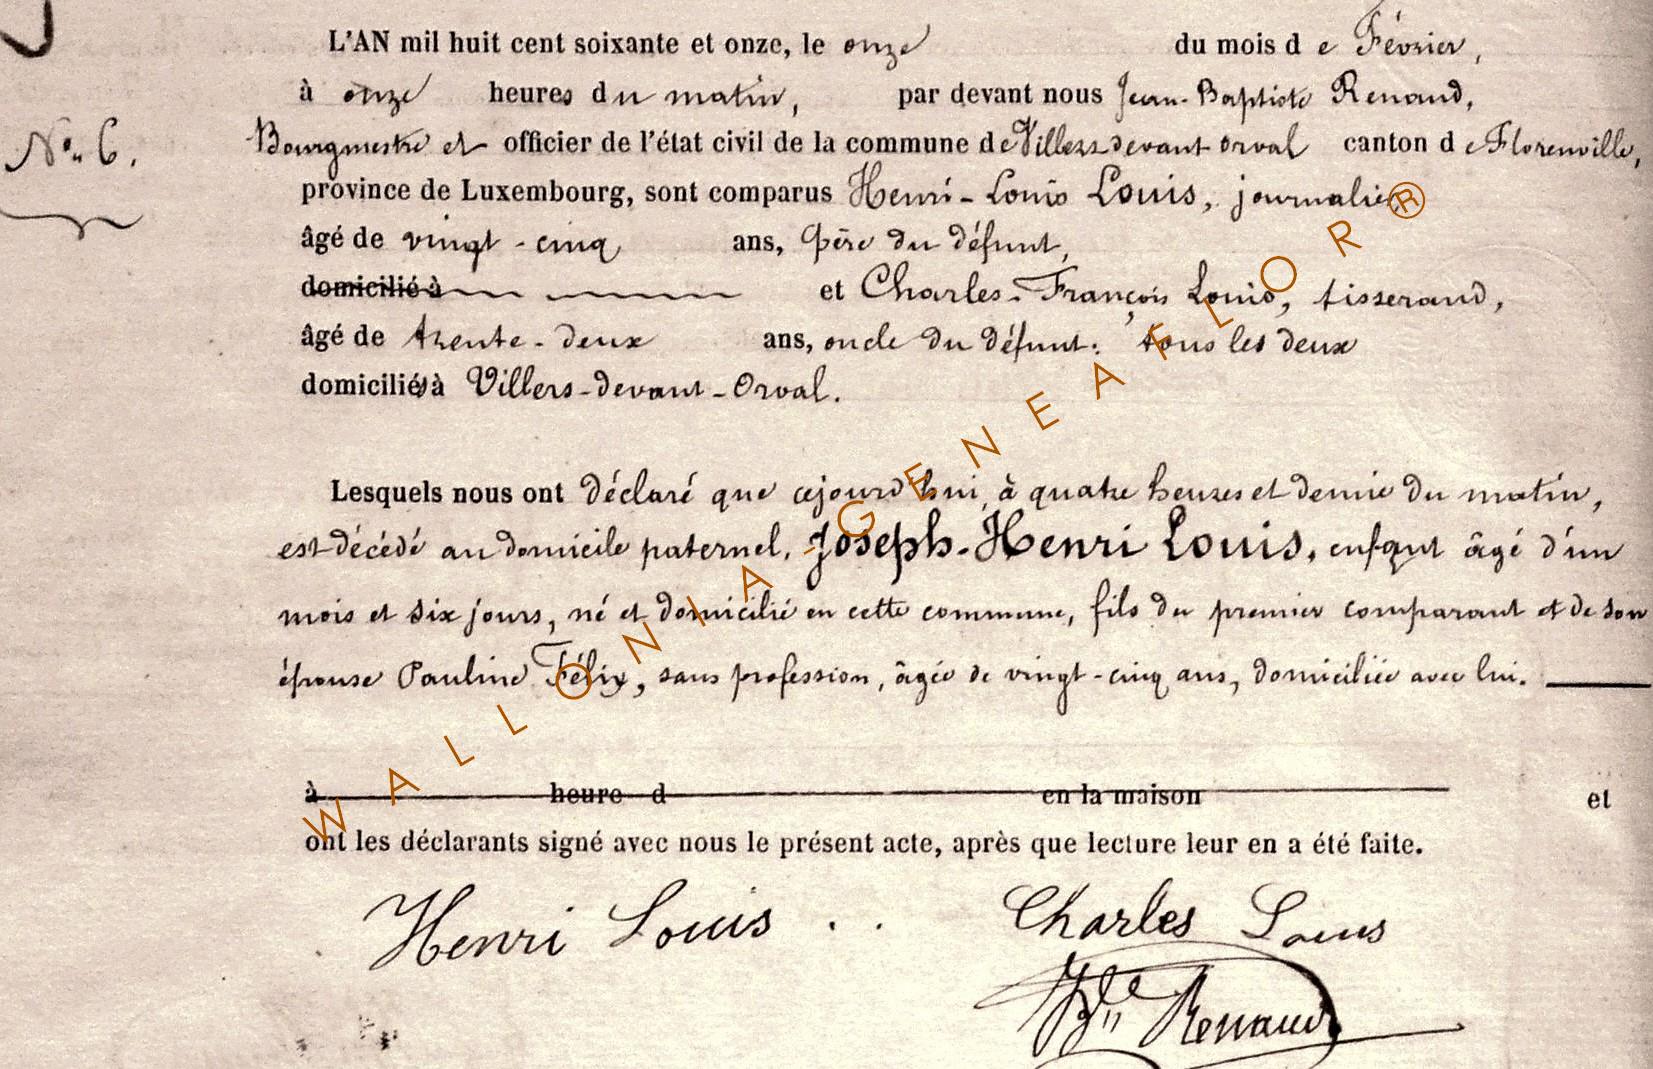 L'AN mil huit cent soixante et onze, le onze du mois de Février,
à onze heures du matin, par devant nous Jean-Baptiste Renaud,
No. 6.
Bourgmestre et officier de l'état civil de la commune de Villers devant orval canton de Florenville,
province de Luxembourg, sont comparus Henri-Louis Louis, journalier
âgé de vingt-cinq ans, père du défunt,
domicilié à et Charles-François Louis, tisserand,
âgé de trente-deux ans, oncle du défunt: tous les deux
domiciliés à Villers-devant-Orval.
Lesquels nous ont déclaré que cejourd'hui, à quatre heures et demie du matin,
est décédé au domicile paternel, Joseph-Henri Louis, enfant âgé d'un
mois et six jours, né et domicilié en cette commune, fils du premier comparant et de son
épouse Pauline Félix, sans profession, âgée de vingt-cinq ans, domiciliée avec lui.
à heure d en la maison et
ont les déclarants signé avec nous le présent acte, après que lecture leur en a été faite.
Henri Louis Charles Louis
JBte Renaud
WALLONIA-GENEAFLOR®